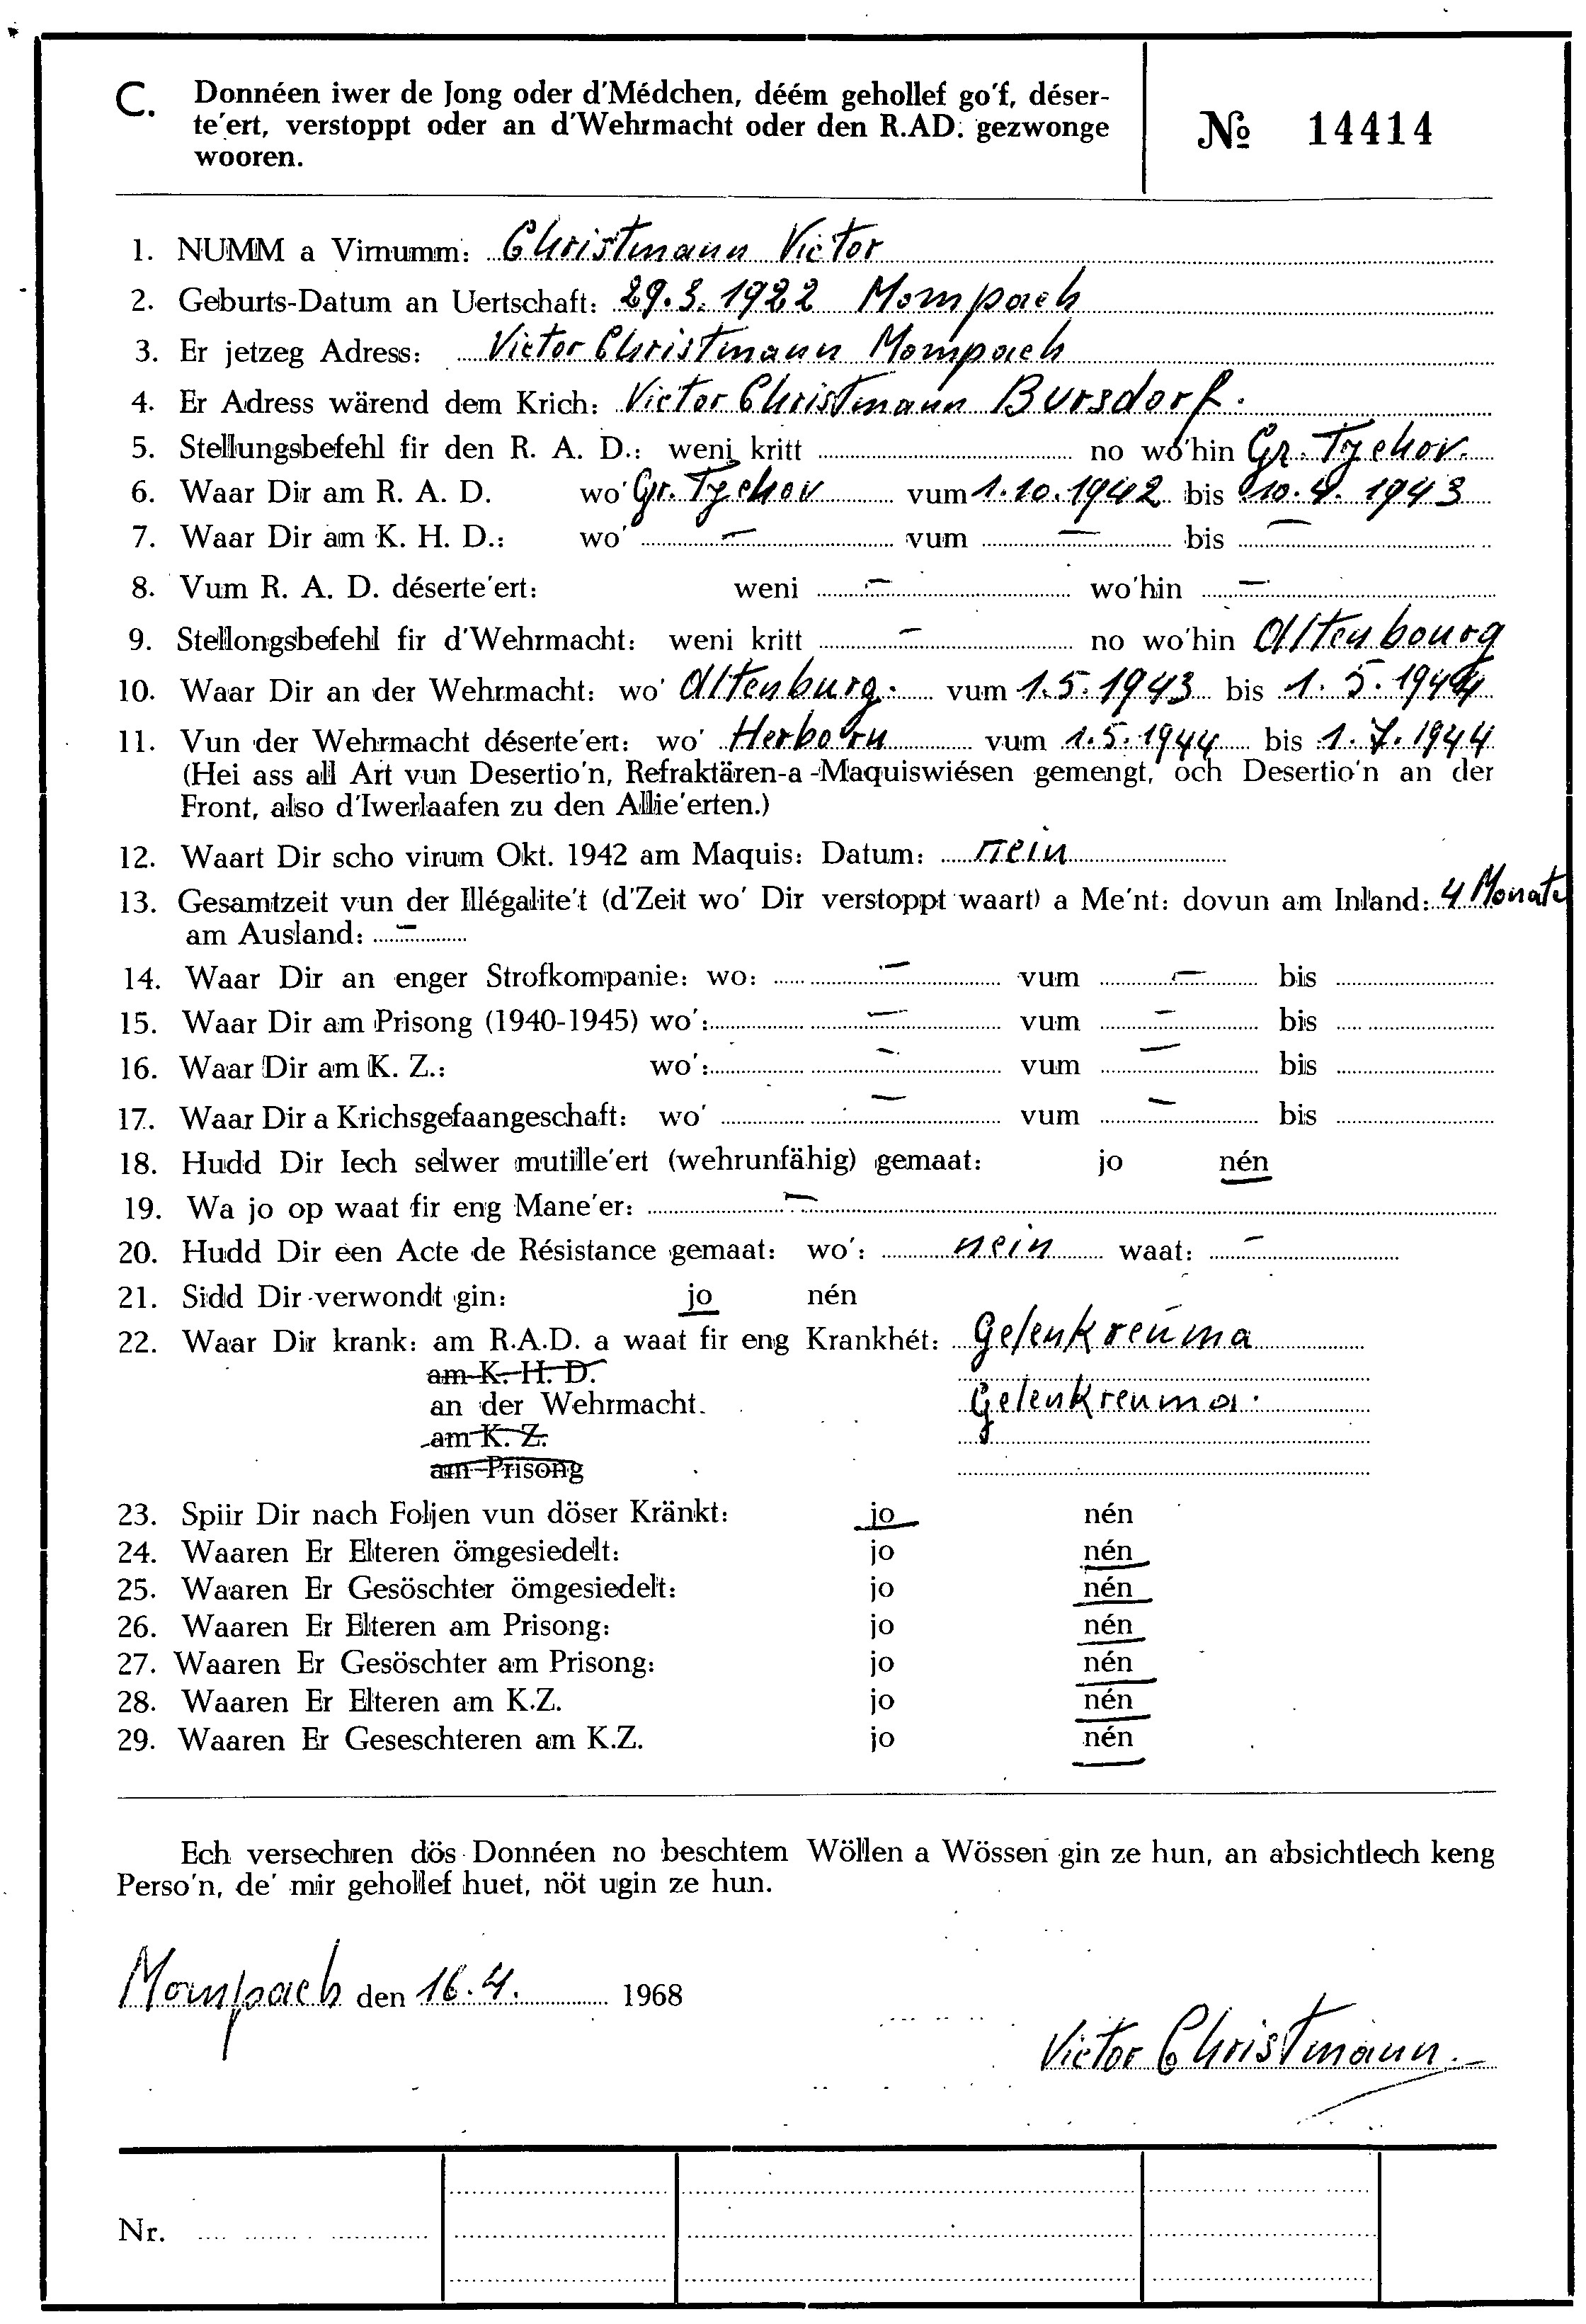 C. Donnéen iwer de Jong oder d'Médchen, déém gehollef go'f, déser-
te'ert, verstoppt oder an d'Wehrmacht oder den R.AD. gezwonge
wooren.
№ 14414
1. NUMM a Virnumm: Christmann Victor
2. Geburts-Datum an Uertschaft: 29.3.1922 Mompach
3. Er jetzeg Adress: Victor Christmann Mompach
4. Er Adress wärend dem Krich: Victor Christmann Bursdorf.
5. Stellungsbefehl fir den R. A. D.: weni kritt no wo'hin Gr. Tychov.
6. Waar Dir am R. A. D. wo' Gr. Tychov vum 1.10.1942 bis 10.4.1943
7. Waar Dir am K. H. D.: wo' — vum — bis —
8. Vum R. A. D. déserte'ert: weni — wo'hin —
9. Stellongsbefehl fir d'Wehrmacht: weni kritt — no wo'hin Altenbourg
10. Waar Dir an der Wehrmacht: wo' Altenburg. vum 1.5.1943 bis 1.5.1944
11. Vun der Wehrmacht déserte'ert: wo' Herborn vum 1.5.1944 bis 1.7.1944
(Hei ass all Art vun Desertio'n, Refraktären-a-Maquiswiésen gemengt, och Desertio'n an der
Front, also d'Iwerlaafen zu den Allie'erten.)
12. Waart Dir scho virum Okt. 1942 am Maquis: Datum: nein
13. Gesamtzeit vun der Illégalite't (d'Zeit wo' Dir verstoppt waart) a Me'nt: dovun am Inland: 4 Monate
am Ausland: —
14. Waar Dir an enger Strofkompanie: wo: — vum — bis
15. Waar Dir am Prisong (1940-1945) wo': — vum — bis
16. Waar Dir am K. Z.: wo': — vum — bis
17. Waar Dir a Krichsgefaangeschaft: wo' — vum — bis
18. Hudd Dir Iech selwer mutille'ert (wehrunfähig) gemaat: jo nén
19. Wa jo op waat fir eng Mane'er: —
20. Hudd Dir een Acte de Résistance gemaat: wo': nein waat: —
21. Sidd Dir verwondt gin: jo nén
22. Waar Dir krank: am R.A.D. a waat fir eng Krankhét: Gelenkreuma
am K. H. D.
an der Wehrmacht. Gelenkreuma.
am K. Z.
am Prisong
23. Spiir Dir nach Foljen vun döser Kränkt: jo nén
24. Waaren Er Elteren ömgesiedelt: jo nén
25. Waaren Er Gesöschter ömgesiedelt: jo nén
26. Waaren Er Elteren am Prisong: jo nén
27. Waaren Er Gesöschter am Prisong: jo nén
28. Waaren Er Elteren am K.Z. jo nén
29. Waaren Er Geseschteren am K.Z. jo nén
Ech versechren dös Donnéen no beschtem Wöllen a Wössen gin ze hun, an absichtlech keng
Perso'n, de' mir gehollef huet, nöt ugin ze hun.
Mompach den 16.4. 1968
Victor Christmann.
Nr.